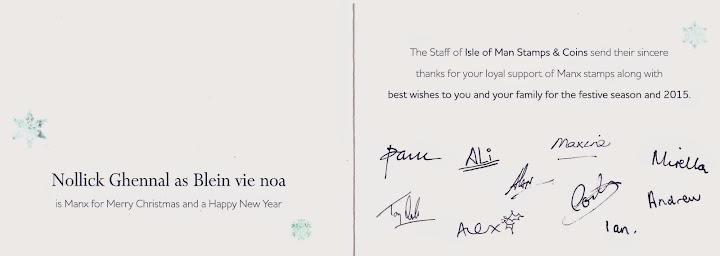 Nollick Ghennal as Blein vie noa
is Manx for Merry Christmas and a Happy New Year
The Staff of Isle of Man Stamps & Coins send their sincere
thanks for your loyal support of Manx stamps along with
best wishes to you and your family for the festive season and 2015.
Pam Ali Maxine Mirella
Andrew
Alex Ian.